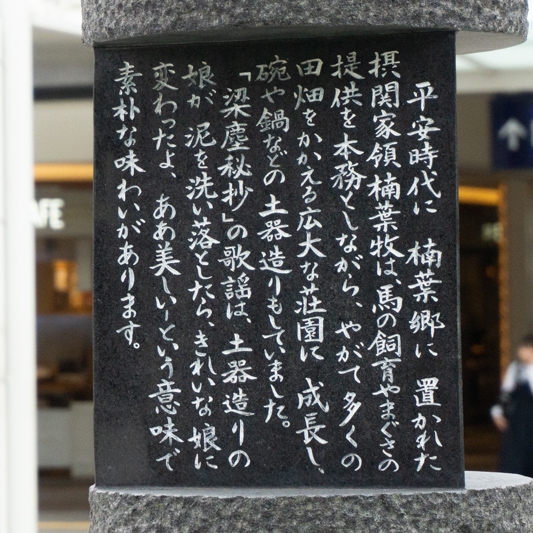 平安時代に 楠葉郷に 置かれた
摂関家領楠葉牧は、馬の飼育やまぐさの
提供を本務としながら、やがて多くの
田畑をかかえる広大な荘園に 成長し、
碗や鍋などの土器造りもしていました。
「梁塵秘抄」の歌謡は、土器造りの
娘が 泥を洗い落としたら、きれいな娘に
変わったよ、ああ美しいーという意味で
素朴な味わいがあります。